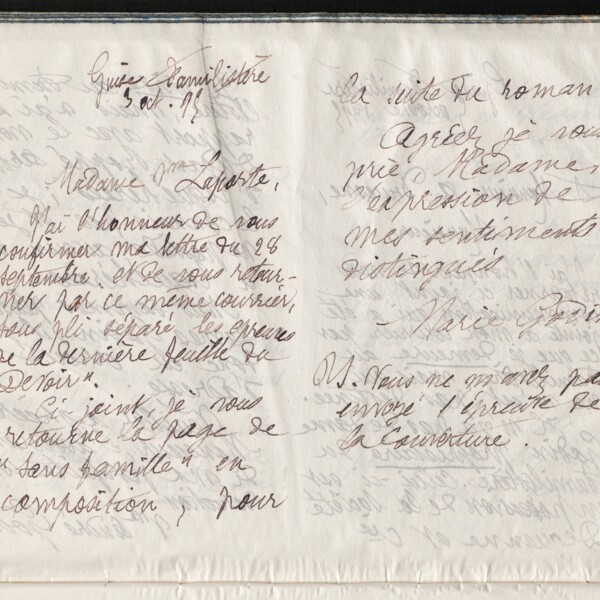 Guise Familistère
3 oct. 95
Madame Vve Laporte,
J'ai l'honneur de vous
confirmer ma lettre du 28
septembre et de vous retour-
ner par ce même courrier,
sous pli séparé, les épreuves
de la dernière feuille du
Devoir".
Ci joint, je vous
retourne la page de
"sans famille" en
composition, pour
la suite du roman
Agréez, je vous
prie Madame,
l'expression de
mes sentiments
distingués
Marie Godin
P.S. Vous ne m'avez pas
envoyé l'épreuve de
la couverture.